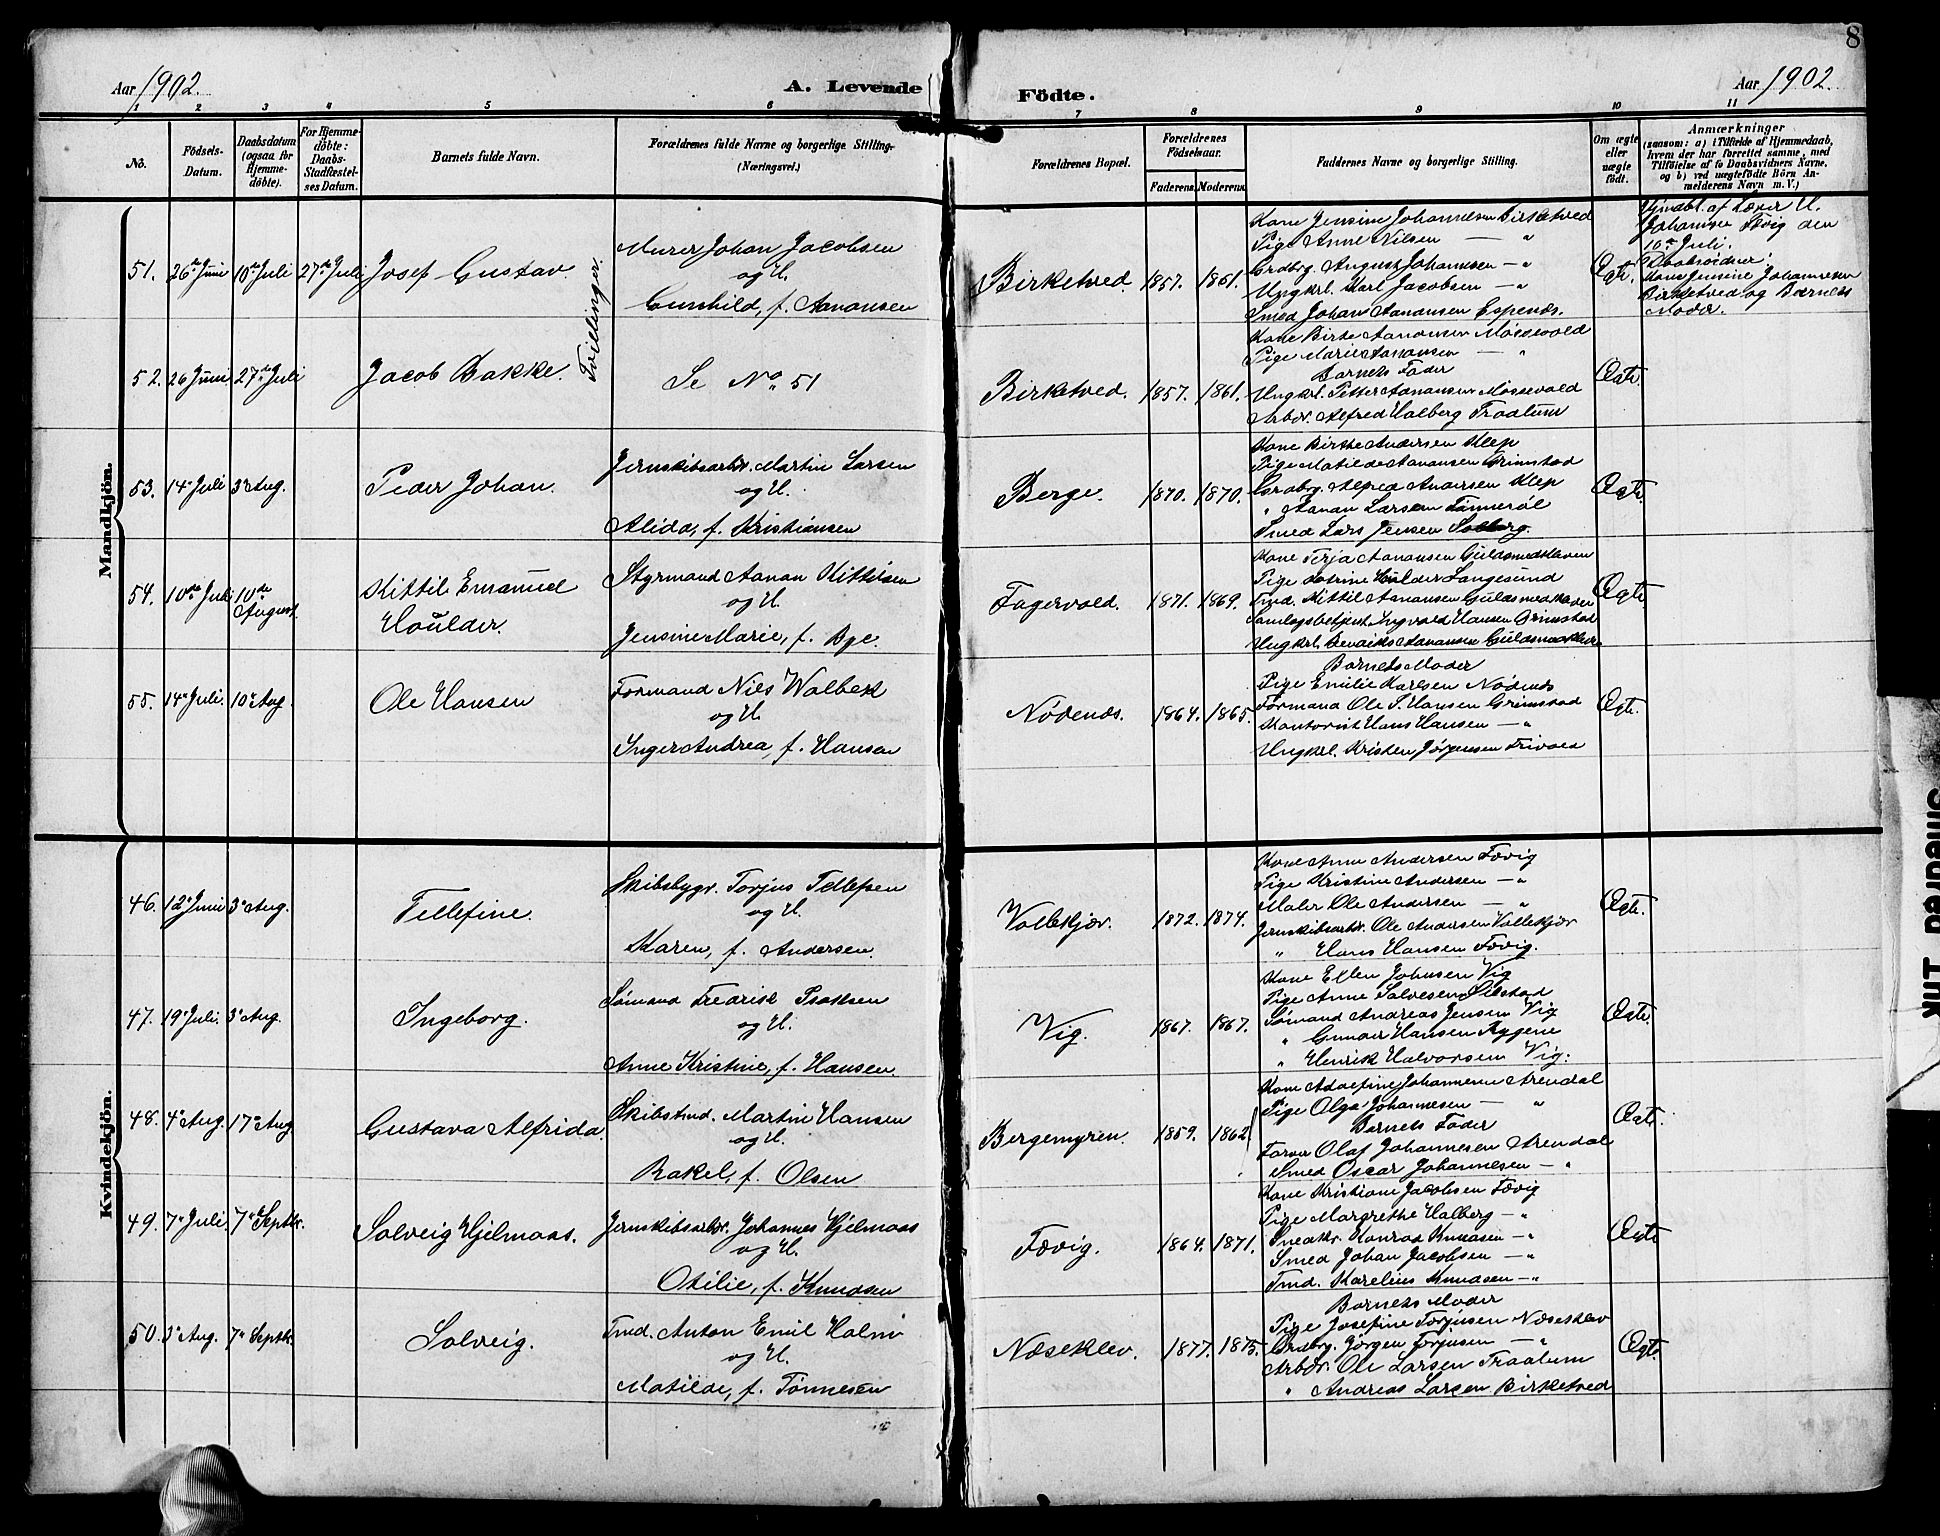 8
Aar 1902.
A. Levende Födte.
Aar 1902.
1 2 3 4 5 6 7 8 9 10 11
No.
Födsels-
Datum.
Daabsdatum
(ogsaa for
Hjemme-
döbte).
For Hjemme-
döbte:
Daabs-
Stadfæstel-
ses Datum.
Barnets fulde Navn.
Forældrenes fulde Navne og borgerlige Stilling.
(Næringsvei.)
Forældrenes Bopæl.
Forældrenes
Födselsaar.
Faderens. Moderens.
Faddernes Navne og borgerlige Stilling.
Om ægte
eller
uægte
födt.
Anmærkninger
(saasom: a) i Tilfælde af Hjemmedaab,
hvem der har forrettet samme, med
Tilföielse af to Daabsvidners Navne,
og b) ved uægtefödte Börn An-
melderens Navn m. V.)
Mandkjön.
51. 26de Juni 10de Juli 27de Juli Josef Gustav
Tvillinger.
Murer Johan Jacobsen
og H.
Gunhild, f. Aanonsen
Birketved. 1857. 1861.
Kone Jensine Johannesen Birketved
Pige Anne Nilsen — "
Grdbrg. August Johannesen — "
Ungkrl. Karl Jacobsen — "
Smed Johan Aanonsen Espenæs.
Ægte.
Hjmdbt. af Lærer H.
Johansen Fævig den
10de Juli.
Daabsvidner:
Kone Jensine Johannesen
Birketved og Barnets
Moder.
52. 26 Juni 27de Juli Jacob Bakke.
Se No. 51
Birketved. 1857. 1861.
Kone Birte Aanonsen Møssevold
Pige Marie Aanonsen — "
Barnets Fader
Ungkrl. Petter Aanonsen Møssevold
Arbdr. Alfred Halberg Traalum
Ægte.
53. 14de Juli 3de Aug. Peder Johan.
Jernskibsarbdr. Martin Larsen
og H.
Alida, f. Kristiansen
Berge. 1870. 1870.
Kone Birthe Andersen Klep
Pige Matilde Aanonsen Grimstad
Grdbrg. Alfred Andersen Klep
" Aanon Larsen Tønnesøl
Smed Lars Jensen Solberg.
Ægte.
54. 10de Juli 10de August. Kittil Emanuel
Houlder.
Styrmand Aanon Kittilsen
og H.
Jensine Marie, f. Bye.
Fagervold. 1871. 1869.
Kone Terja Aanonsen Guldsmedhaven
Pige Katrine Houlder Langesund
Tmd. Kittil Aanonsen Guldsmedhaven
Samlagsbetjent Ingvald Hansen Grimstad
Ungkrl. Aanonsen Guldsmedhaven
Ægte.
55. 14de Juli. 10de Aug. Ole Hansen
Formand Niels Walbek
og H.
Inger Andrea, f. Hansen
Nødenæs. 1864. 1865.
Barnets Moder
Pige Emilie Karlsen Nødenæs
Formand Ole T. Hansen Grimstad
Kontorist Hans Hansen — "
Ungkrl. Kristen Jørgensen Frivold
Ægte.
Kvindekjön.
46. 12te Juni 3de Aug. Tellefine.
Skibsbygr. Torjus Tellefsen
og H.
Karen, f. Andersen.
Vollekjær. 1872. 1874.
Kone Anne Andersen Fævig
Pige Kristine Andersen — "
Maler Ole Andersen — "
Jernskibsarbdr. Ole Andersen Vollekjær
" Hans Hansen Fævig.
Ægte.
47. 19de Juli. 3de Aug. Ingeborg.
Sømand Fredrik Isaksen
og H.
Anne Kristine, f. Hansen.
Vig. 1867. 1867.
Kone Ellen Johnsen Vig
Pige Anne Salvesen Ølestad
Sømand Andreas Jensen Vig
" Gunder Hansen Rygene
" Henrik Halvorsen Vig.
Ægte.
48. 4de Aug. 17de Aug Gustava Alfrida.
Skibstmd. Martin Hansen
og H.
Rakel, f. Olsen
Bergemyren. 1859. 1862.
Kone Adolfine Johannesen Arendal
Pige Olga Johannesen — "
Barnets Fader
Farver Olaf Johannesen Arendal
Smed Oscar Johannesen — "
Ægte.
49. 7de Juli. 7de Septbr. Solveig Hjelmaas.
Jernskibsarbdr. Johannes Hjelmaas
og H.
Otilie, f. Knudsen
Fævig. 1864. 1871.
Kone Kristiane Jacobsen Fævig
Pige Margrethe Halberg — "
Snedkr. Konrad Knudsen — "
Smed Johan Jacobsen — "
Tmd. Karelius Knudsen — "
Ægte
50. 3de Aug. 7de Septbr. Solveig.
Tmd. Anton Emil Holm
og H.
Matilde, f. Tønnesen
Næseklev. 1877. 1875.
Barnets Moder
Pige Josefine Torjusen Næseklev
Grdbrg. Jörgen Torjusen — "
Arbdr. Ole Larsen Traalum
" Andreas Larsen Birketved
Ægte.